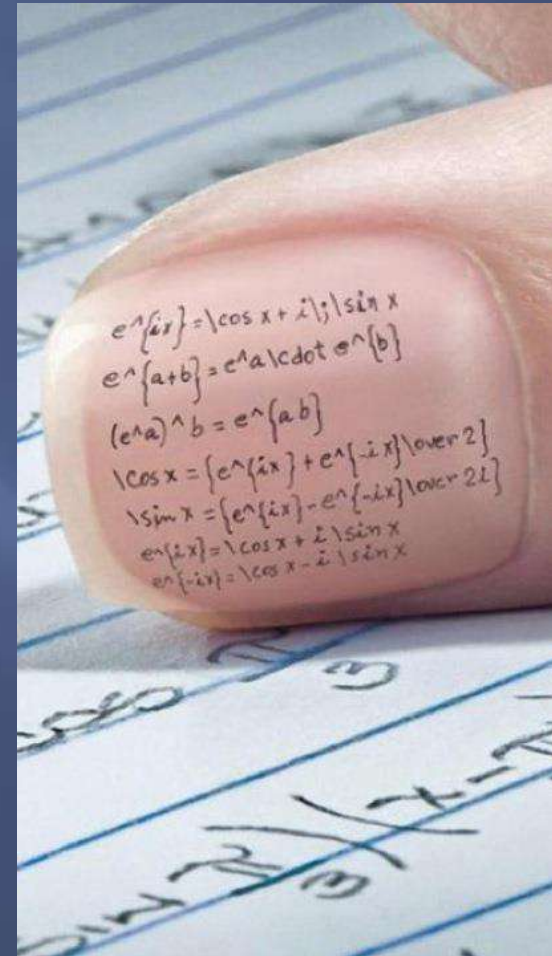 e^{ix}=\cos x+i\;\sin x
e^{a+b}=e^a\cdot e^{b}
(e^a)^b=e^{ab}
\cos x={e^{ix}+e^{-ix}\over 2}
\sin x={e^{ix}-e^{-ix}\over 2i}
e^{ix}=\cos x+i\sin x
e^{-ix}=\cos x-i\sin x
π
3
sin π/3)(x-π